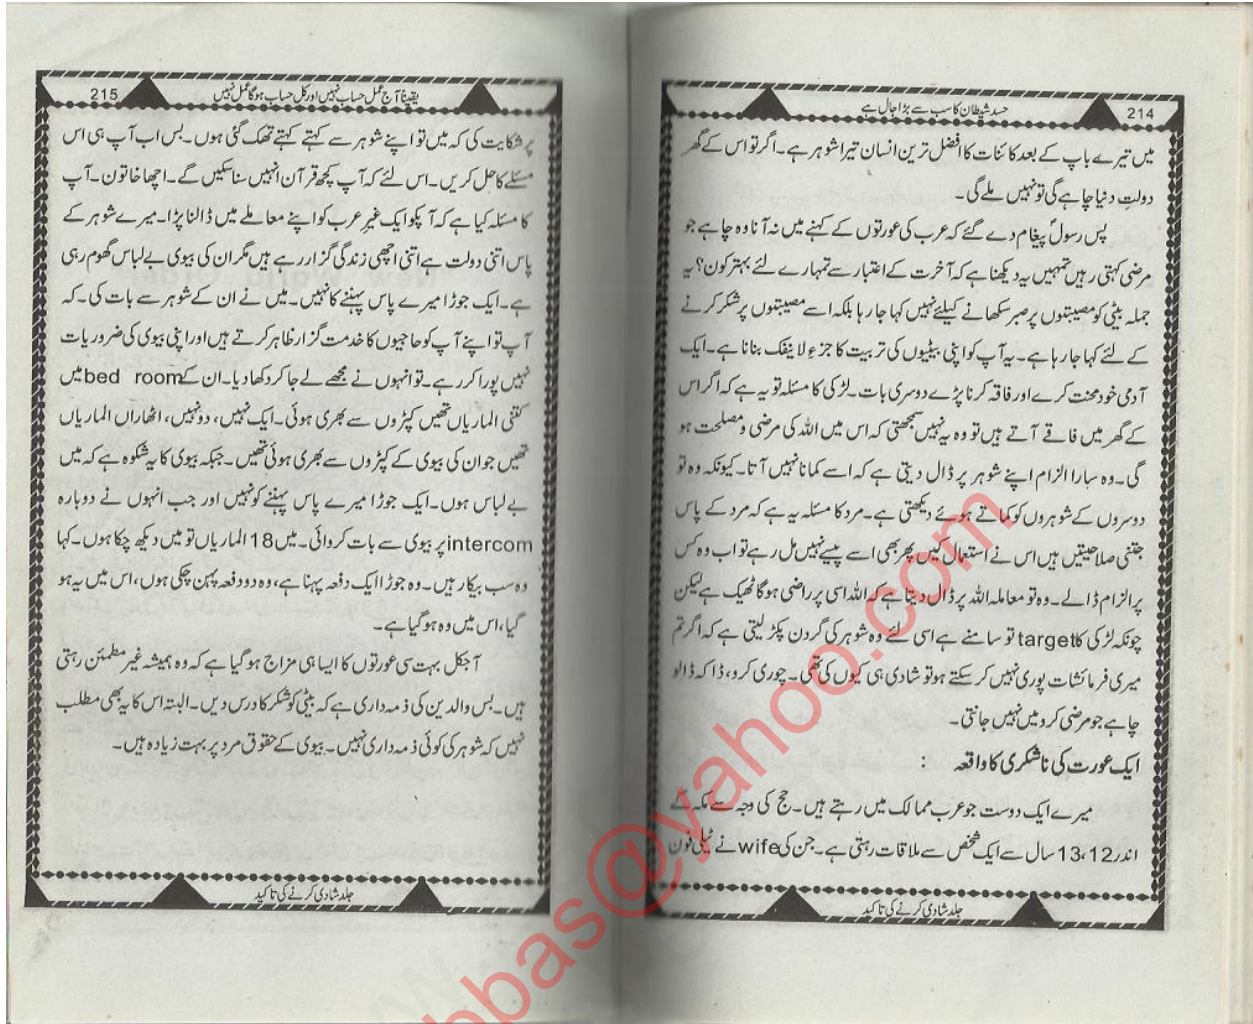 حسد شیطان کا سب سے بڑا جال ہے
214
میں تیرے باپ کے بعد کائنات کا افضل ترین انسان تیرا شوہر ہے۔ اگر تو اس کے گھر
دولتِ دنیا چاہے گی تو نہیں ملے گی۔
پس رسولؐ پیغام دے گئے کہ عرب کی عورتوں کے کہنے میں نہ آنا وہ چاہے جو
مرضی کہتی رہیں تمہیں یہ دیکھنا ہے کہ آخرت کے اعتبار سے تمہارے لئے بہتر کون؟ یہ
جملہ بیٹی کو مصیبتوں پر صبر سکھانے کیلئے نہیں کہا جا رہا بلکہ اسے مصیبتوں پر شکر کرنے
کے لئے کہا جا رہا ہے۔ یہ آپ کو اپنی بیٹیوں کی تربیت کا جزءِ لا ینفک بنانا ہے۔ ایک
آدمی خود محنت کرے اور فاقہ کرنا پڑے دوسری بات۔ لڑکی کا مسئلہ تو یہ ہے کہ اگر اس
کے گھر میں فاقے آتے ہیں تو وہ یہ نہیں سمجھتی کہ اس میں اللہ کی مرضی و مصلحت ہو
گی۔ وہ سارا الزام اپنے شوہر پر ڈال دیتی ہے کہ اسے کمانا نہیں آتا۔ کیونکہ وہ تو
دوسروں کے شوہروں کو کماتے ہوئے دیکھتی ہے۔ مرد کا مسئلہ یہ ہے کہ مرد کے پاس
جتنی صلاحیتیں ہیں اس نے استعمال کیں پھر بھی اسے پیسے نہیں مل رہے تو اب وہ کس
پر الزام ڈالے۔ وہ تو معاملہ اللہ پر ڈال دیتا ہے کہ اللہ اسی پر راضی ہوگا ٹھیک ہے لیکن
چونکہ لڑکی کا target تو سامنے ہے اسی لئے وہ شوہر کی گردن پکڑ لیتی ہے کہ اگر تم
میری فرمائشات پوری نہیں کر سکتے ہو تو شادی ہی کیوں کی تھی۔ چوری کرو، ڈاکہ ڈالو
چاہے جو مرضی کرو میں نہیں جانتی۔
ایک عورت کی ناشکری کا واقعہ :
میرے ایک دوست جو عرب ممالک میں رہتے ہیں۔ حج کی وجہ سے مکہ کے
اندر 12، 13 سال سے ایک شخص سے ملاقات رہتی ہے۔ جن کی wife نے ٹیلی فون
جلد شادی کرنے کی تاکید
یقیناً آج عمل حساب نہیں اور کل حساب ہوگا عمل نہیں
215
پر شکایت کی کہ میں تو اپنے شوہر سے کہتے کہتے تھک گئی ہوں۔ بس اب آپ ہی اس
مسئلے کا حل کریں۔ اس لئے کہ آپ کچھ قرآن انہیں سنا سکیں گے۔ اچھا خاتون۔ آپ
کا مسئلہ کیا ہے کہ آپکو ایک غیرِ عرب کو اپنے معاملے میں ڈالنا پڑا۔ میرے شوہر کے
پاس اتنی دولت ہے اتنی اچھی زندگی گزار رہے ہیں مگر ان کی بیوی بے لباس گھوم رہی
ہے۔ ایک جوڑا میرے پاس پہننے کا نہیں۔ میں نے ان کے شوہر سے بات کی۔ کہ
آپ تو اپنے آپ کو حاجیوں کا خدمت گزار ظاہر کرتے ہیں اور اپنی بیوی کی ضروریات
نہیں پورا کر رہے۔ تو انہوں نے مجھے لے جا کر دکھا دیا۔ ان کے bed room میں
کتنی الماریاں تھیں کپڑوں سے بھری ہوئی۔ ایک نہیں، دو نہیں، اٹھاراں الماریاں
تھیں جو ان کی بیوی کے کپڑوں سے بھری ہوئی تھیں۔ جبکہ بیوی کا یہ شکوہ ہے کہ میں
بے لباس ہوں۔ ایک جوڑا میرے پاس پہننے کو نہیں اور جب انہوں نے دوبارہ
intercom پر بیوی سے بات کروائی۔ میں 18 الماریاں تو میں دیکھ چکا ہوں۔ کہا
وہ سب بیکار ہیں۔ وہ جوڑا ایک دفعہ پہنا ہے، وہ دو دفعہ پہن چکی ہوں، اس میں یہ ہو
گیا، اس میں وہ ہو گیا ہے۔
آجکل بہت سی عورتوں کا ایسا ہی مزاج ہو گیا ہے کہ وہ ہمیشہ غیر مطمئن رہتی
ہیں۔ بس والدین کی ذمہ داری ہے کہ بیٹی کو شکر کا درس دیں۔ البتہ اس کا یہ بھی مطلب
نہیں کہ شوہر کی کوئی ذمہ داری نہیں۔ بیوی کے حقوق مرد پر بہت زیادہ ہیں۔
جلد شادی کرنے کی تاکید
bbas@yahoo.com